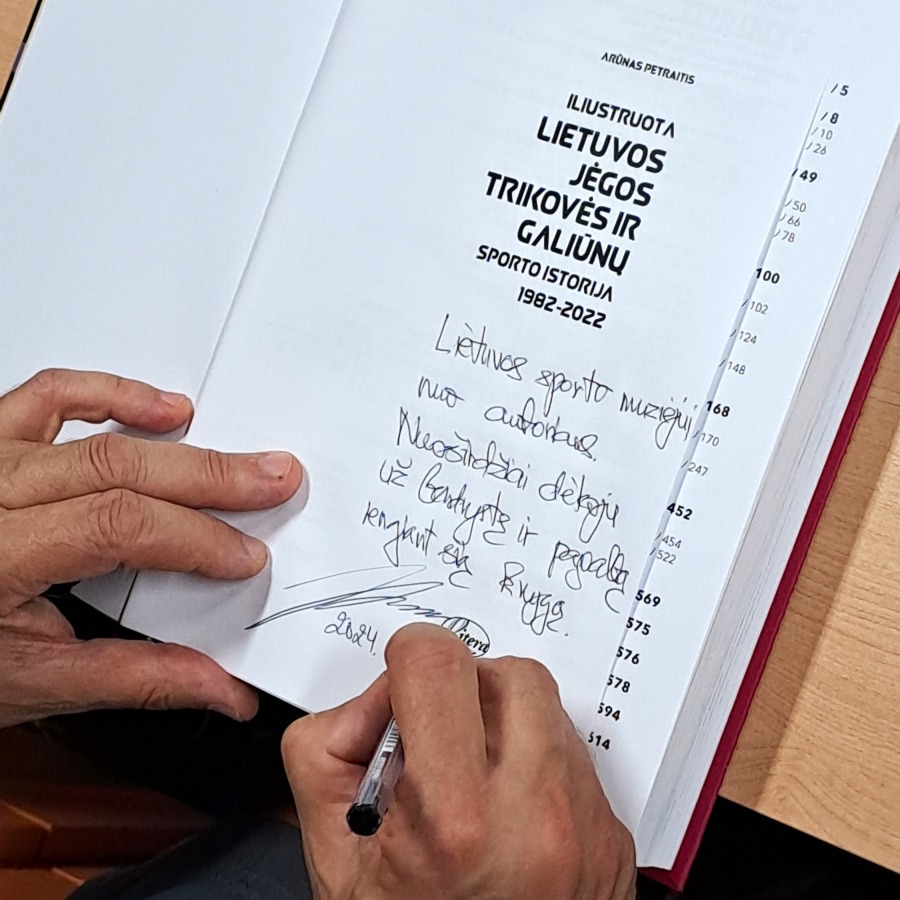 ARŪNAS PETRAITIS
ILIUSTRUOTA
LIETUVOS
JĖGOS
TRIKOVĖS IR
GALIŪNŲ
SPORTO ISTORIJA
1982-2022
Lietuvos sporto muziejui
nuo autoriaus.
Nuoširdžiai dėkoju
už bendrystę ir pagalbą
rengiant šią knygą.
2024.
Litera
/ 5
/ 8
/ 10
/ 26
/ 49
/ 50
/ 66
/ 78
100
/ 102
/ 124
/ 148
168
/ 170
/ 247
452
/ 454
/ 522
569
575
576
578
594
614